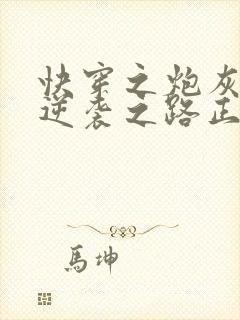 快穿之炮灰
逆袭之路正
馬坤